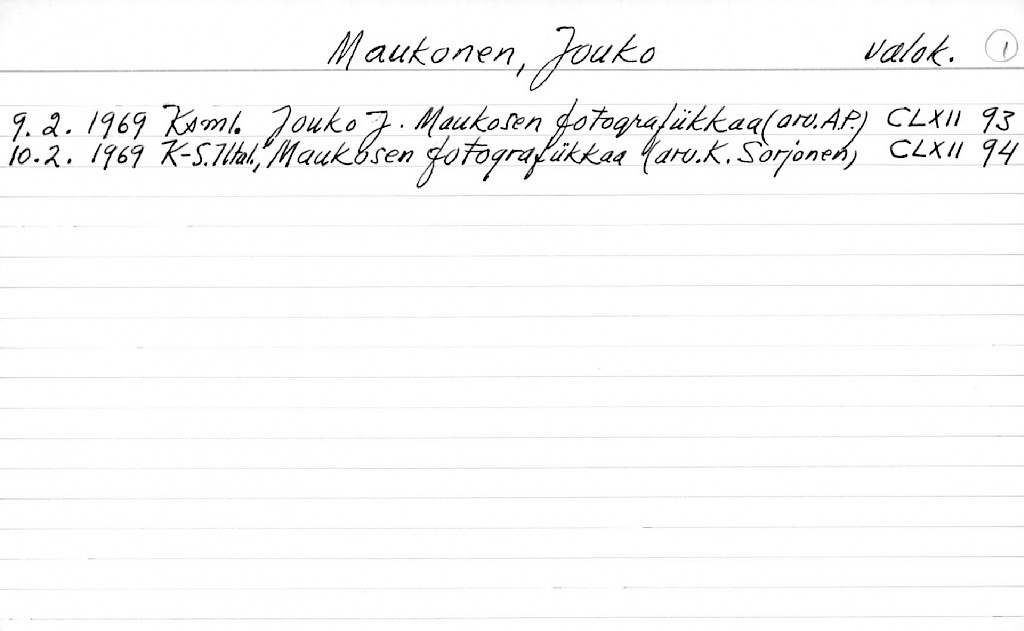 Maukonen, Jouko valok. 1
9. 2. 1969 Ksml. Jouko J. Maukosen fotografiikkaa (arv. A.P.) CLXII 93
10. 2. 1969 K-S. Iltal., Maukosen fotografiikkaa (arv. K. Sorjonen) CLXII 94